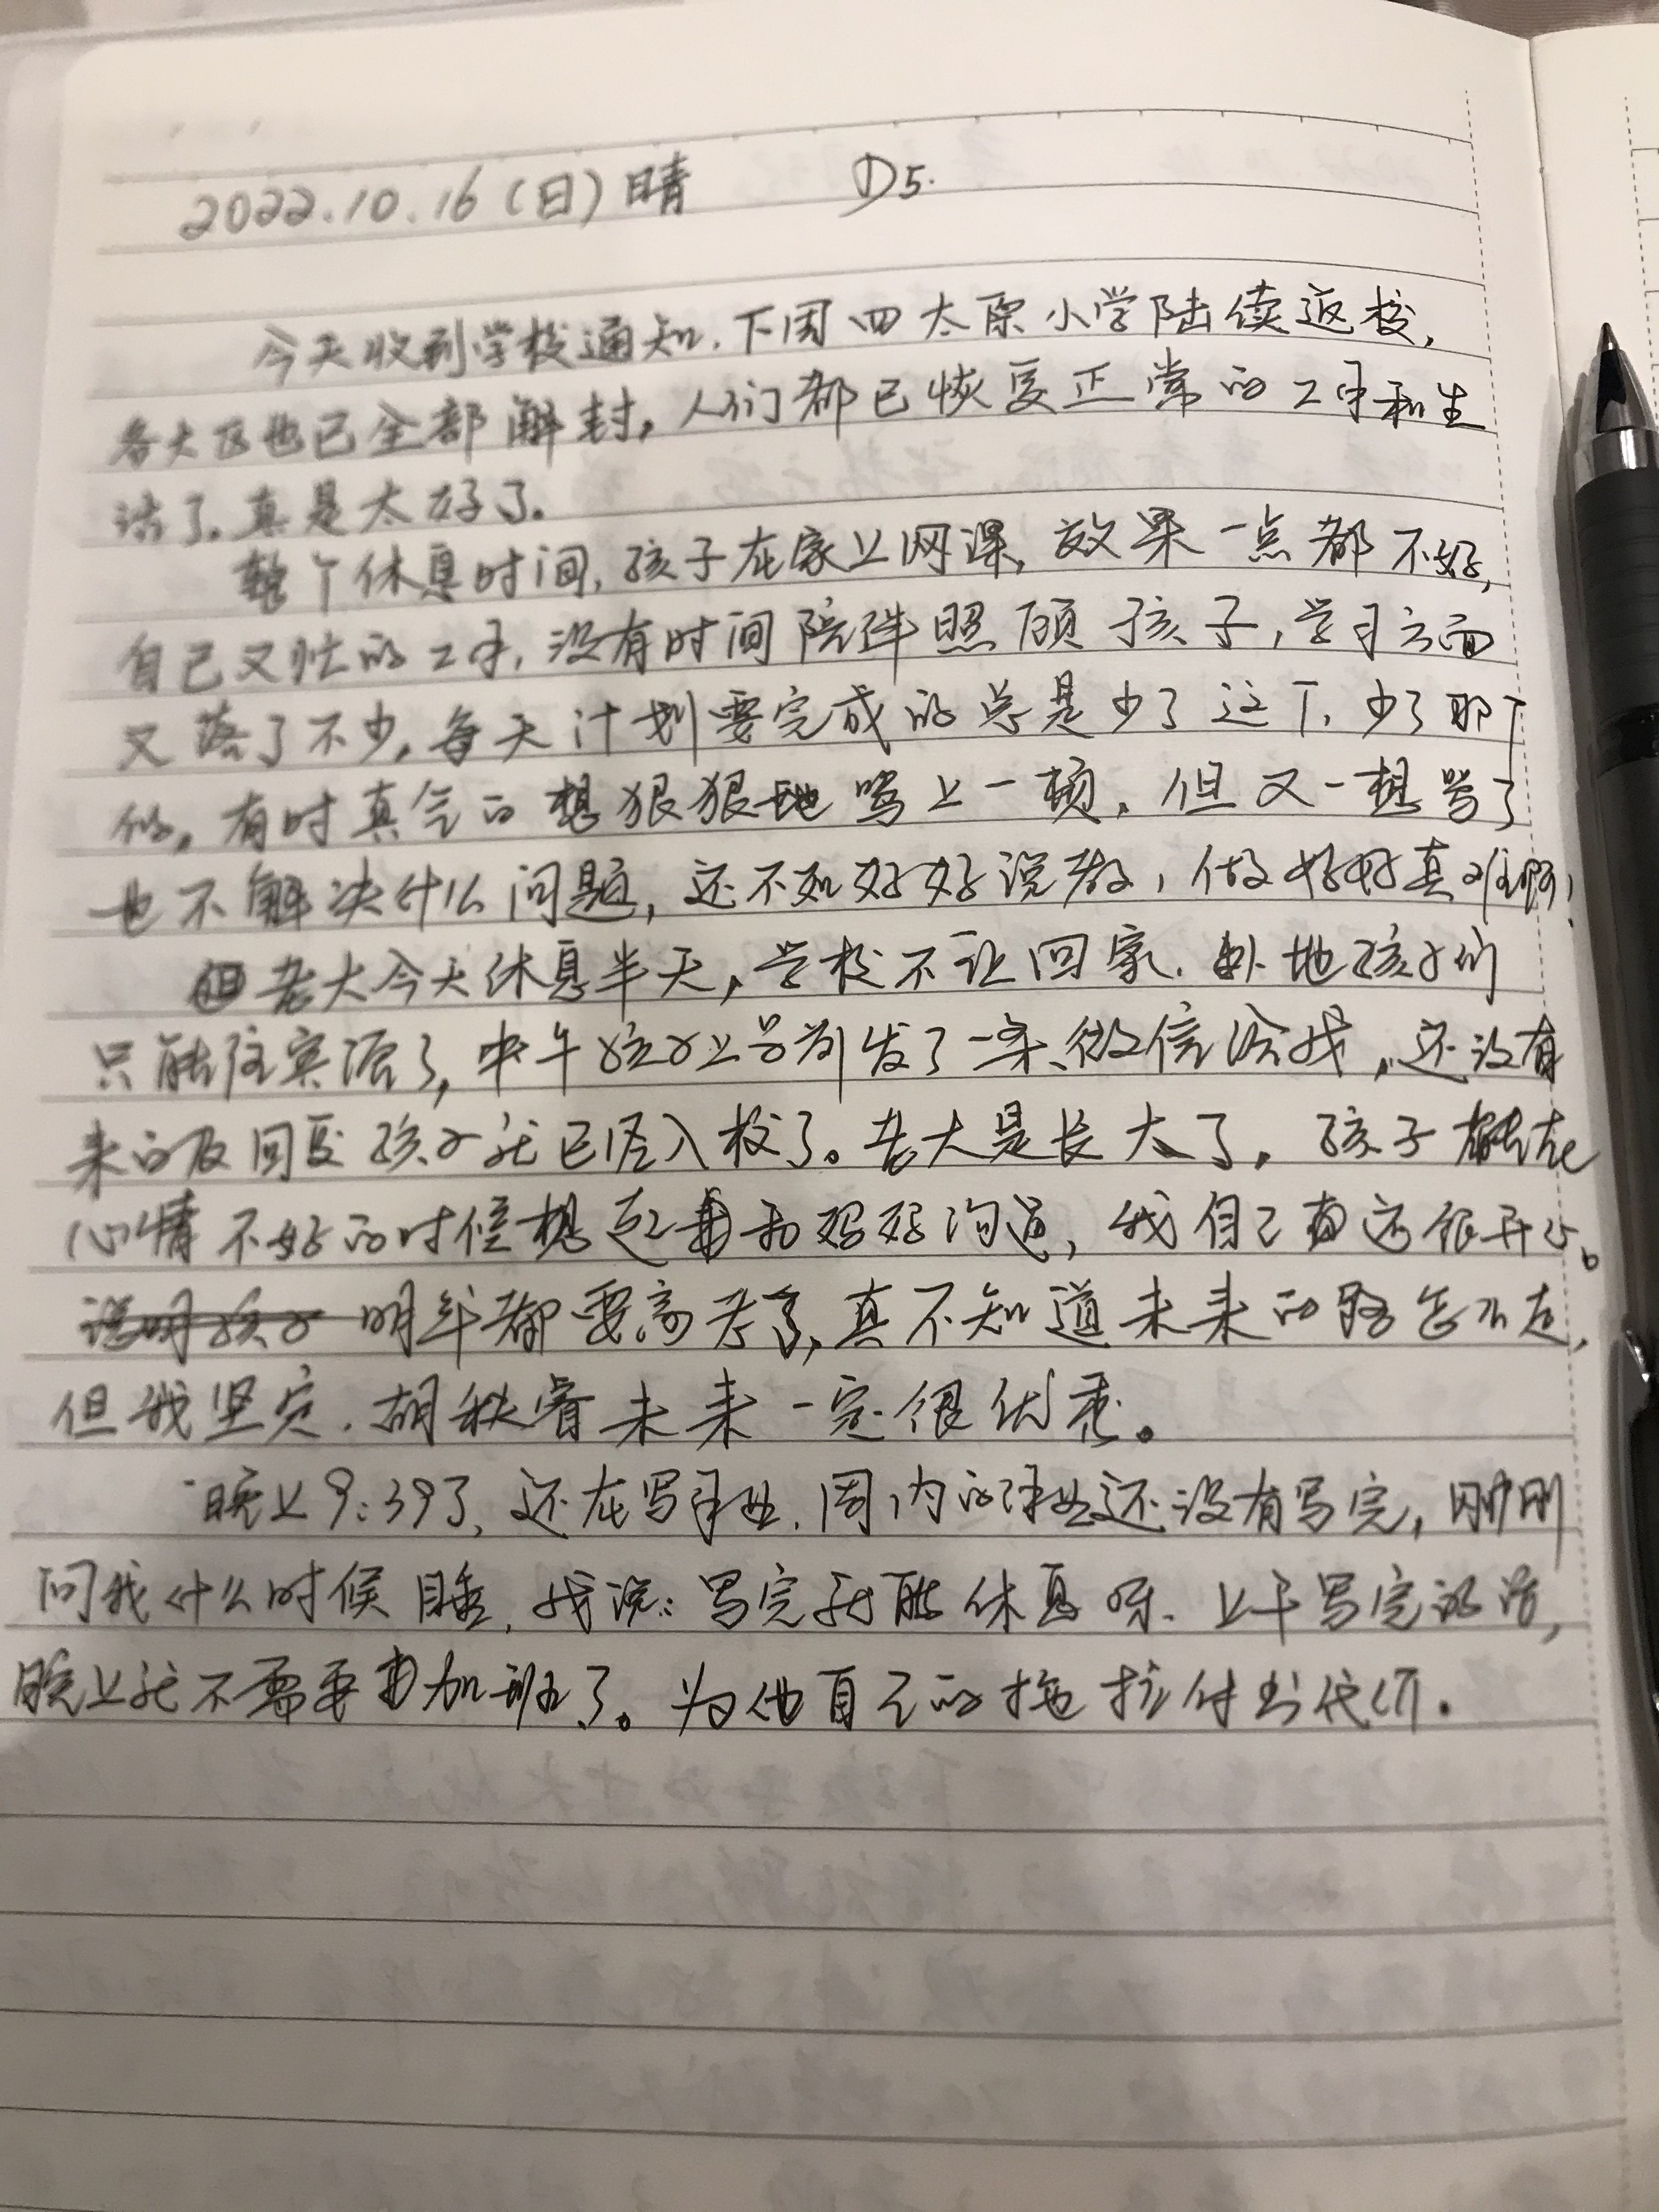 2022.10.16(日)晴 D5.
今天收到学校通知.下周四太原小学陆续返校,
各大区也已全部解封,人们都已恢复正常的工作和生
活了.真是太好了.
整个休息时间,孩子在家上网课,效果一点都不好,
自己又忙的工作,没有时间陪伴照顾孩子,学习方面
又落了不少,每天计划要完成的总是少了这个,少了那个
似,有时真气的想狠狠地骂上一顿,但又一想骂了
也不解决什么问题,还不如好好说教,做好妈真难啊!
老大今天休息半天,学校不让回家.外地孩子们
只能住宾馆了,中午孩子上学前发了一条微信给我,还没有
来的及回复孩子就已经入校了。老大是长大了,孩子能在
心情不好的时候想起和妈妈沟通,我自己真还很开心。
明年都要高考了,真不知道未来的路怎么走,
但我坚定.胡秩睿未来一定很优秀。
晚上9:39了,还在写作业.周内的作业还没有写完,刚刚
问我什么时候睡,我说:写完就能休息呀.上午写完的话,
晚上就不需要加班了。为他自己的拖拉付出代价.